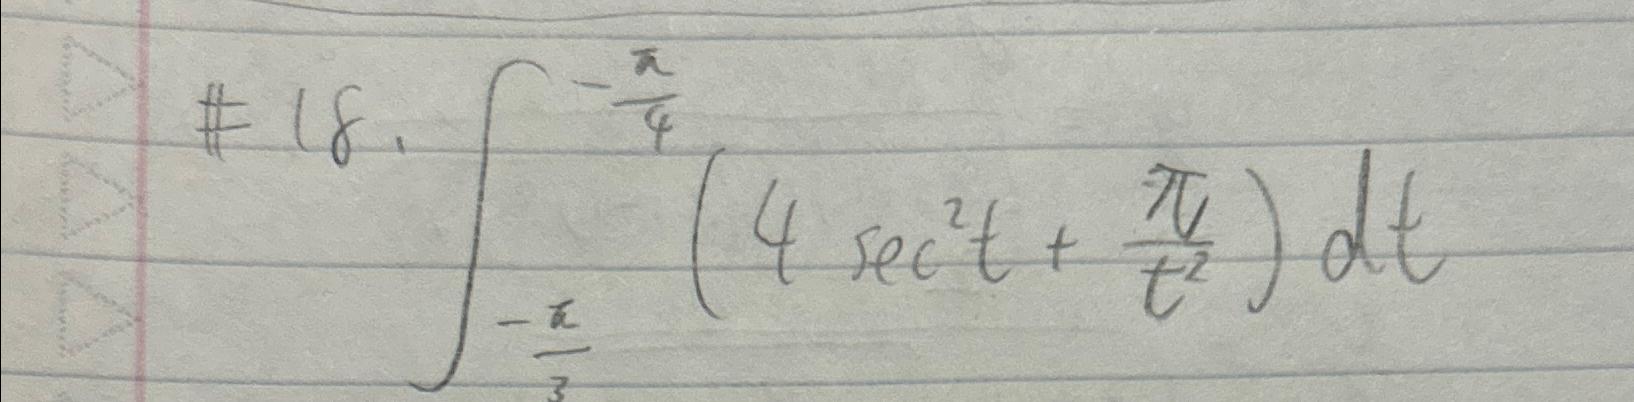 #18. ∫_{-π/3}^{-π/4} (4 sec²t + π/t²) dt